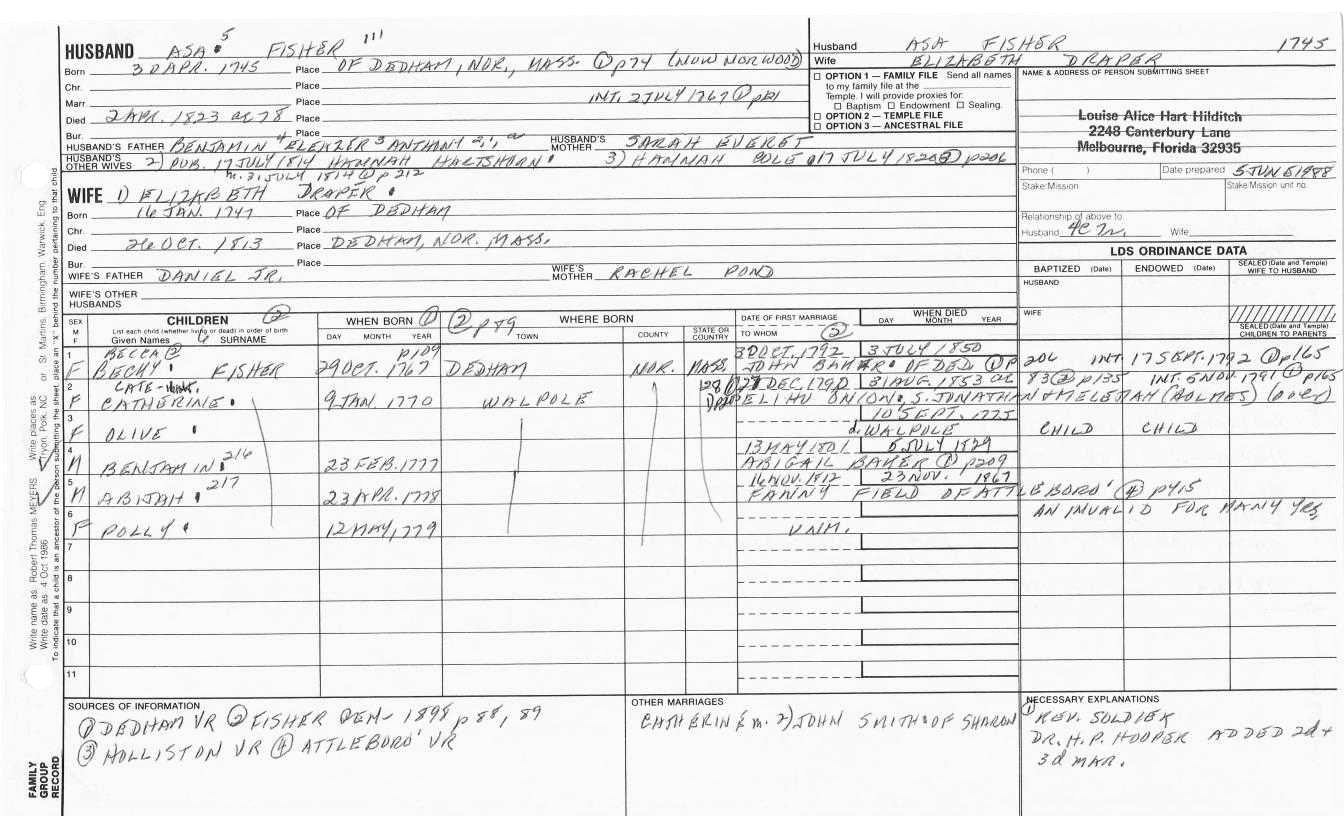 HUSBAND ASA 5 FISHER 111
Born 30 APR. 1745 Place OF DEDHAM, NOR., MASS. ① p74 (NOW NORWOOD)
Chr. Place
Marr. Place INT. 2 JULY 1767 ① p121
Died 2 APR. 1823 ae 78 Place
Bur. Place
HUSBAND'S FATHER BENJAMIN 4 ELEAZER 3 ANTHONY 2, 1, a HUSBAND'S MOTHER SARAH EVERET
HUSBAND'S OTHER WIVES 2) PUB. 17 JULY 1814 HANNAH HARTSHORN 3) HANNAH COLE 17 JULY 1820 ③ p206
m. 31 JULY 1814 ① p 212
WIFE 1) ELIZABETH DRAPER
Born 16 JAN. 1747 Place OF DEDHAM
Chr. Place
Died 26 OCT. 1813 Place DEDHAM, NOR. MASS.
Bur. Place
WIFE'S FATHER DANIEL JR. WIFE'S MOTHER RACHEL POND
WIFE'S OTHER HUSBANDS
Husband ASA FISHER 1745
Wife ELIZABETH DRAPER
☐ OPTION 1 — FAMILY FILE Send all names
to my family file at the
Temple. I will provide proxies for:
☐ Baptism ☐ Endowment ☐ Sealing.
☐ OPTION 2 — TEMPLE FILE
☐ OPTION 3 — ANCESTRAL FILE
NAME & ADDRESS OF PERSON SUBMITTING SHEET
Louise Alice Hart Hilditch
2248 Canterbury Lane
Melbourne, Florida 32935
Phone ( ) Date prepared 5 JUNE 1988
Stake/Mission Stake/Mission unit no.
Relationship of above to
Husband 4C Wife
LDS ORDINANCE DATA
BAPTIZED (Date) ENDOWED (Date) SEALED (Date and Temple) WIFE TO HUSBAND
HUSBAND
WIFE
SEALED (Date and Temple) CHILDREN TO PARENTS
SEX M F CHILDREN ② WHEN BORN ① ② p 89 WHERE BORN DATE OF FIRST MARRIAGE WHEN DIED
List each child (whether living or dead) in order of birth
Given Names 6 SURNAME DAY MONTH YEAR TOWN COUNTY STATE OR COUNTRY TO WHOM ② DAY MONTH YEAR
1 BECCA ② p109 3 OCT. 1792 3 JULY 1850
F BECKY FISHER 29 OCT. 1767 DEDHAM NOR. MASS. JOHN BAKER OF DED. ① p 206 INT. 17 SEPT. 1792 ① p165
2 CATE 128 DEC. 1790 31 AUG. 1853 ae 83 ② p135 INT. 5 NOV. 1791 ① p165
F CATHERINE 9 JAN. 1770 WALPOLE ELIHU ONION, S. JONATHAN & MELETIAH (HOLMES) (over)
3 10 SEPT. 1775
F OLIVE d. WALPOLE CHILD CHILD
4 13 MAY 1801 5 JULY 1829
M BENJAMIN 216 23 FEB. 1777 ABIGAIL BAKER ① p209
5 16 NOV. 1812 23 NOV. 1867
M ABIJAH 217 23 APR. 1778 FANNY FIELD OF ATTLEBORO' ④ p415
6 AN INVALID FOR MANY YRS.
F POLLY 12 MAY, 1779 UNM.
7
8
9
10
11
SOURCES OF INFORMATION
① DEDHAM VR ② FISHER GEN- 1898 p 88, 89
③ HOLLISTON VR ④ ATTLEBORO' VR
OTHER MARRIAGES
CATHERINE m. 2) JOHN SMITH OF SHARON
NECESSARY EXPLANATIONS
① REV. SOLDIER
DR. H. P. HOOPER ADDED 2d +
3d MAR.
Write name as: Robert Thomas MEYERS Write places as: Tryon, Polk, NC or St. Martins, Birmingham, Warwick, Eng
Write date as: 4 Oct 1986
To indicate that a child is an ancestor of the person submitting the sheet, place an "X" behind the number pertaining to that child
FAMILY
GROUP
RECORD